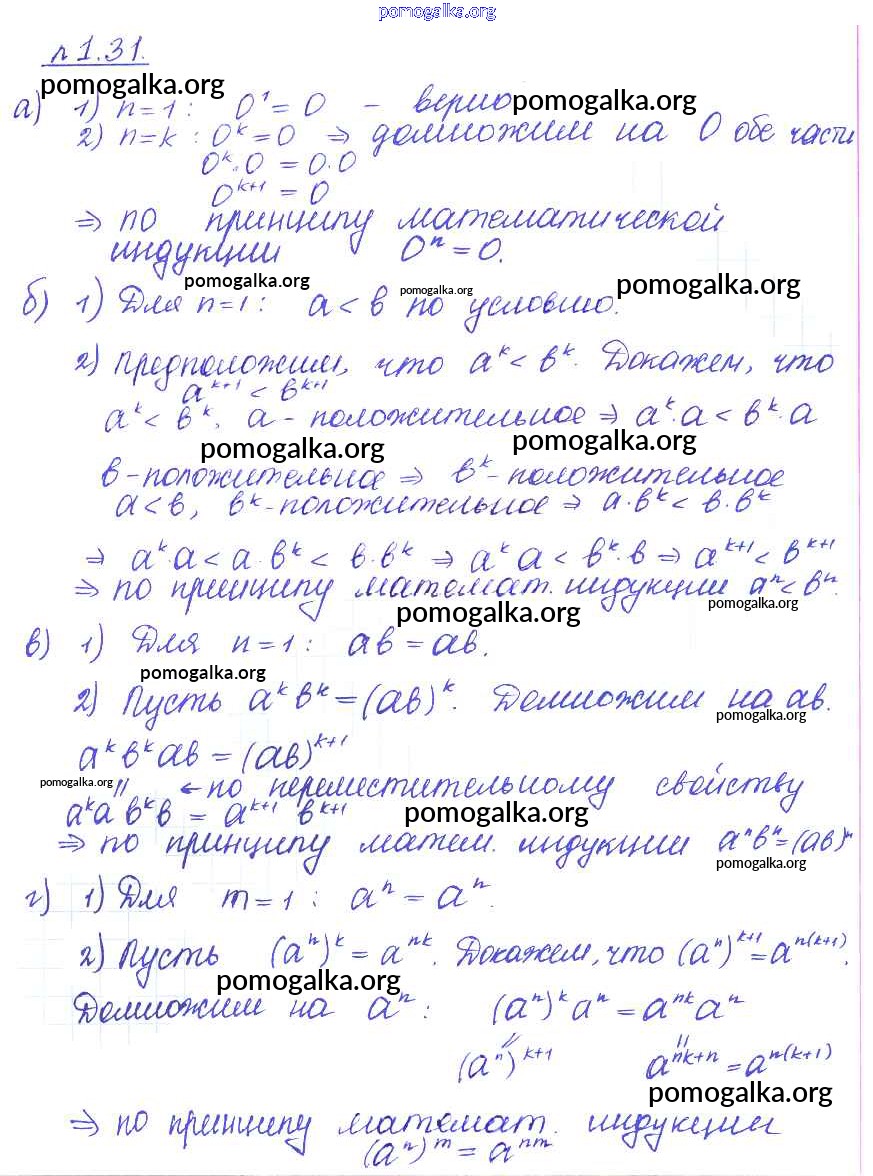 pomogalka.org
№ 1.31.
pomogalka.org
а) 1) n=1 : 0¹ = 0 - верно pomogalka.org
2) n=k : 0ᵏ=0 ⇒ домножим на 0 обе части
0ᵏ·0 = 0·0
0ᵏ⁺¹ = 0
⇒ по принципу математической
индукции 0ⁿ = 0.
pomogalka.org pomogalka.org pomogalka.org
б) 1) Для n=1 : a < b по условию.
2) Предположим, что aᵏ < bᵏ. Докажем, что
aᵏ⁺¹ < bᵏ⁺¹
aᵏ < bᵏ, a - положительное ⇒ aᵏ·a < bᵏ·a
pomogalka.org pomogalka.org
b-положительное ⇒ bᵏ-положительное
a < b, bᵏ-положительное ⇒ a·bᵏ < b·bᵏ
⇒ aᵏ·a < a·bᵏ < b·bᵏ ⇒ aᵏ·a < bᵏ·b ⇒ aᵏ⁺¹ < bᵏ⁺¹
⇒ по принципу математ. индукции aⁿ < bⁿ.
pomogalka.org pomogalka.org
в) 1) Для n = 1 : ab = ab.
pomogalka.org
2) Пусть aᵏbᵏ = (ab)ᵏ. Домножим на ab.
pomogalka.org
aᵏbᵏab = (ab)ᵏ⁺¹
pomogalka.org // ← по переместительному свойству
aᵏa bᵏb = aᵏ⁺¹ bᵏ⁺¹ pomogalka.org
⇒ по принципу матем. индукции aⁿbⁿ=(ab)ⁿ
pomogalka.org
г) 1) Для m = 1 : aⁿ = aⁿ.
2) Пусть (aⁿ)ᵏ = aⁿᵏ. Докажем, что (aⁿ)ᵏ⁺¹ = aⁿ⁽ᵏ⁺¹⁾.
pomogalka.org
Домножим на aⁿ : (aⁿ)ᵏaⁿ = aⁿᵏaⁿ
// //
(aⁿ)ᵏ⁺¹ aⁿᵏ⁺ⁿ = aⁿ⁽ᵏ⁺¹⁾
pomogalka.org
⇒ по принципу математ. индукции
(aⁿ)ᵐ = aⁿᵐ